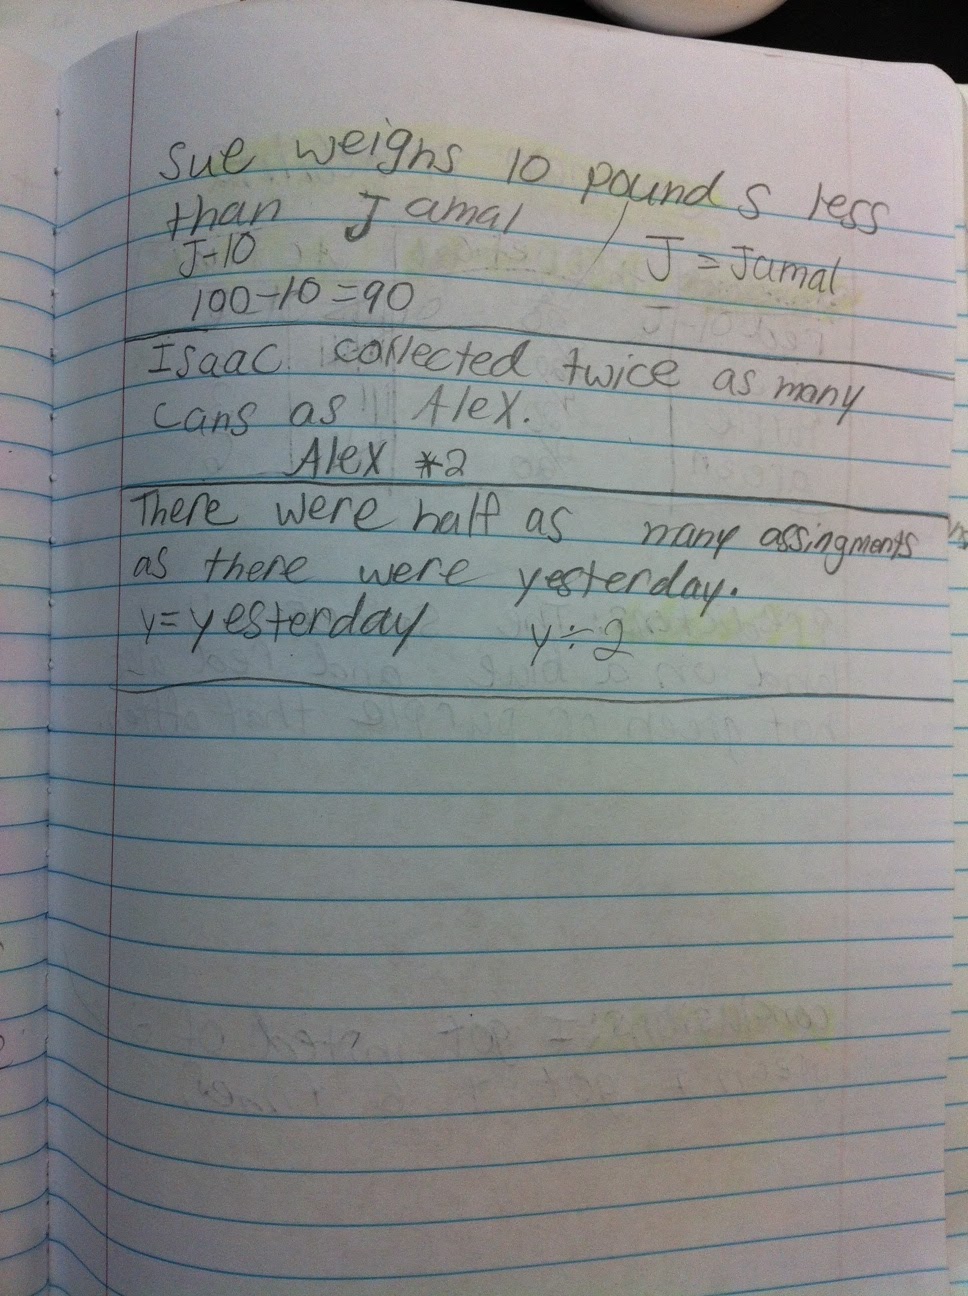 Sue weighs 10 pounds less
than Jamal
J-10 J = Jamal
100-10=90
Isaac collected twice as many
cans as Alex.
Alex *2
There were half as many assingments
as there were yesterday.
y=yesterday y÷2